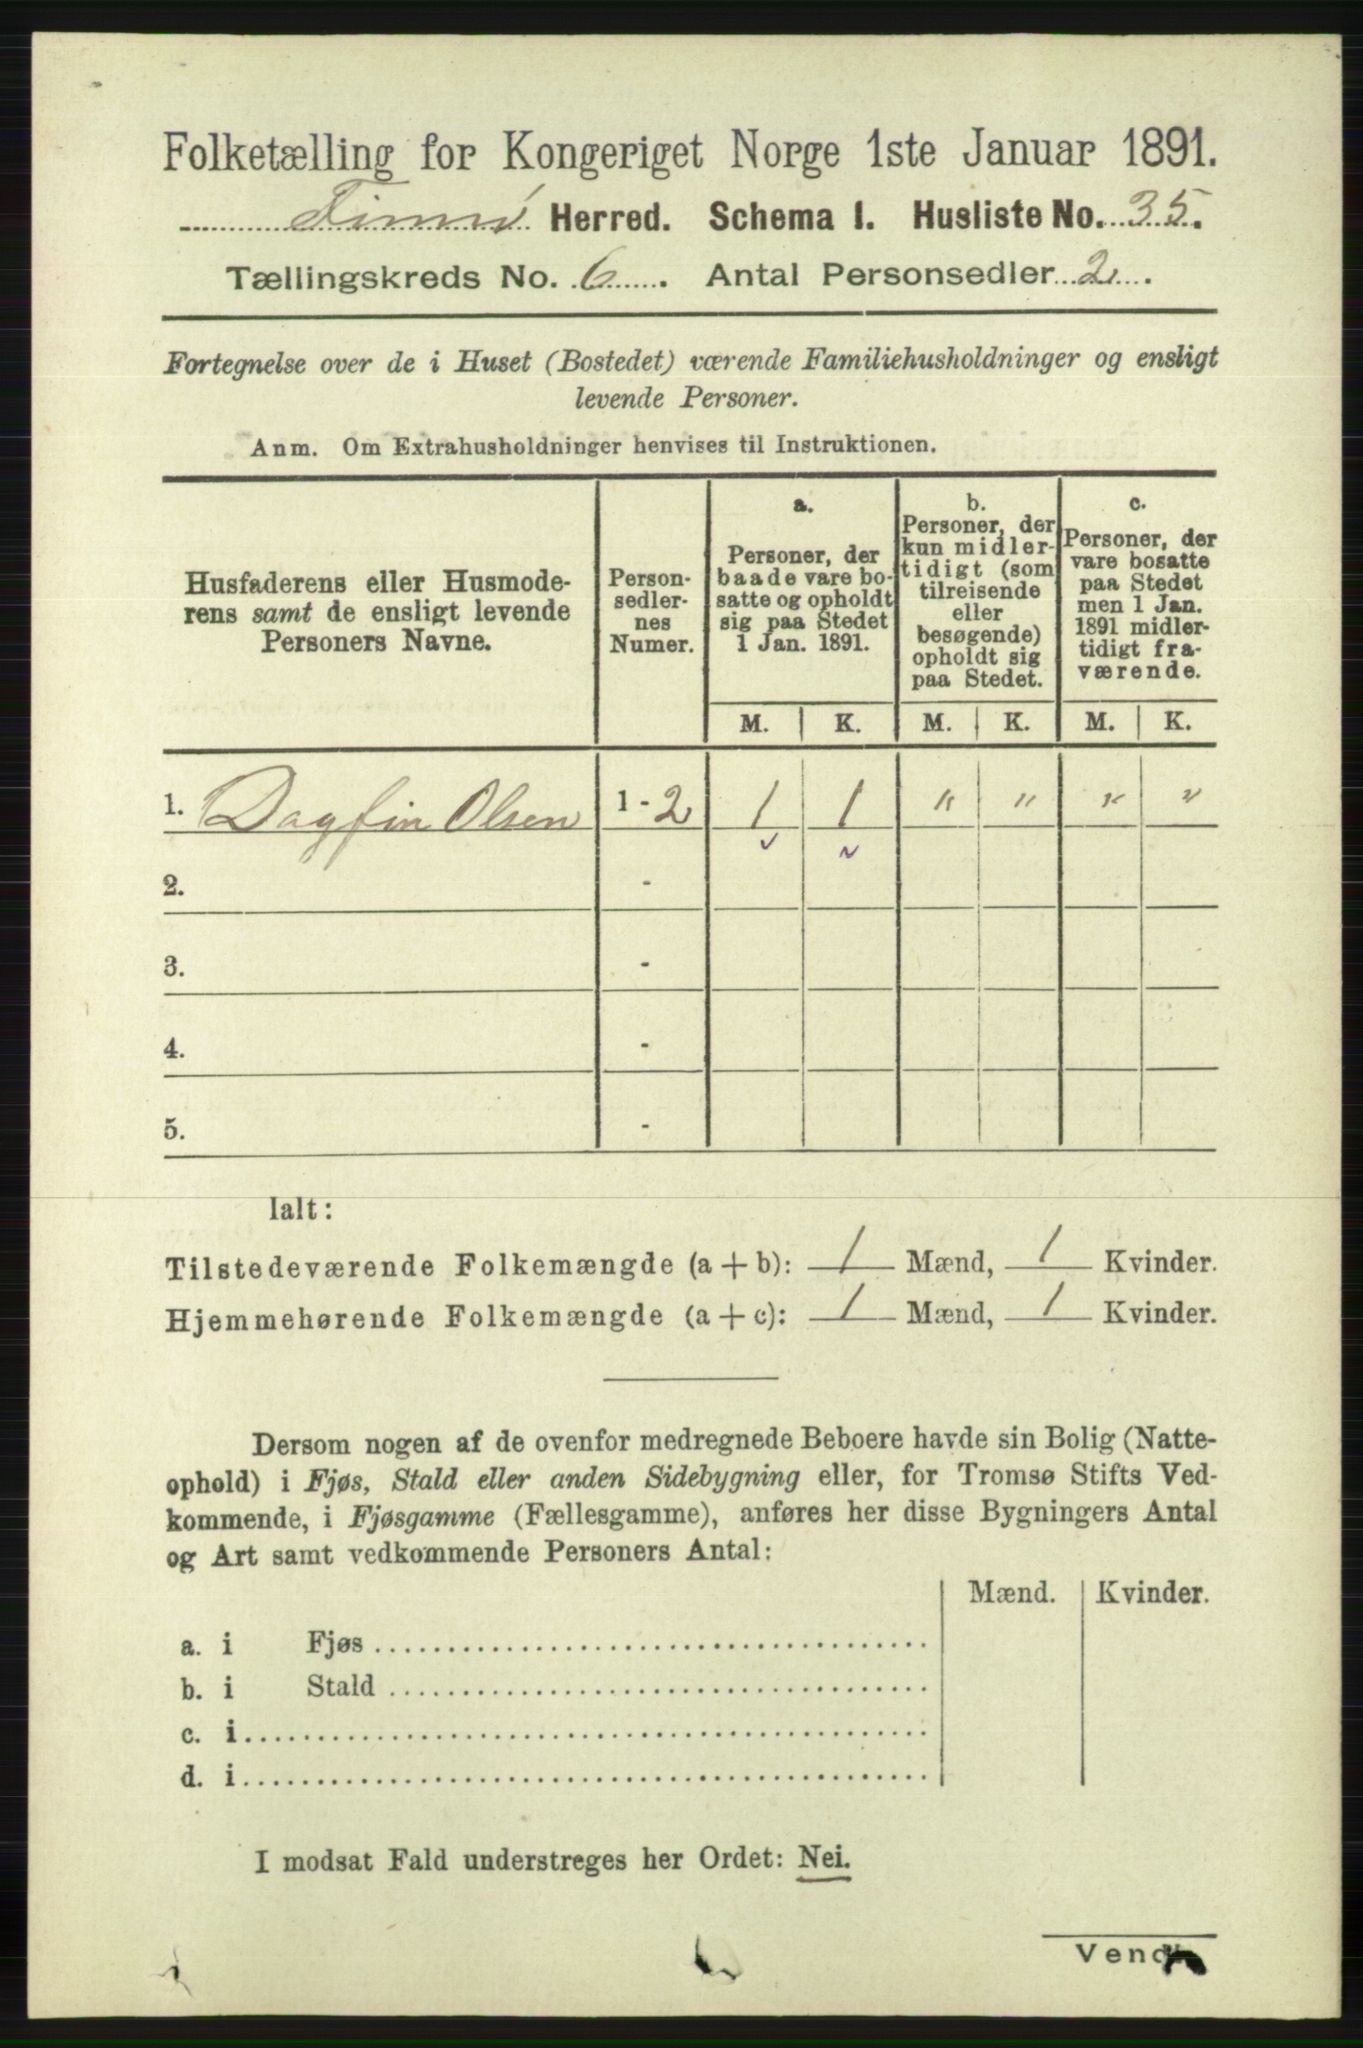 Folketælling for Kongeriget Norge 1ste Januar 1891.
Finnø Herred. Schema I. Husliste No. 35.
Tællingskreds No. 6. Antal Personsedler 2.
Fortegnelse over de i Huset (Bostedet) værende Familiehusholdninger og ensligt
levende Personer.
Anm. Om Extrahusholdninger henvises til Instruktionen.
Husfaderens eller Husmode-
rens samt de ensligt levende
Personers Navne.
Person-
sedler-
nes
Numer.
a.
Personer, der
baade vare bo-
satte og opholdt
sig paa Stedet
1 Jan. 1891.
b.
Personer, der
kun midler-
tidigt (som
tilreisende
eller
besøgende)
opholdt sig
paa Stedet.
c.
Personer, der
vare bosatte
paa Stedet
men 1 Jan.
1891 midler-
tidigt fra-
værende.
M. K. M. K. M. K.
1. Dagfin Olsen 1 - 2 1 1 " " " "
2. -
3. -
4. -
5. -
Ialt:
Tilstedeværende Folkemængde (a + b): 1 Mænd, 1 Kvinder.
Hjemmehørende Folkemængde (a + c): 1 Mænd, 1 Kvinder.
Dersom nogen af de ovenfor medregnede Beboere havde sin Bolig (Natte-
ophold) i Fjøs, Stald eller anden Sidebygning eller, for Tromsø Stifts Ved-
kommende, i Fjøsgamme (Fællesgamme), anføres her disse Bygningers Antal
og Art samt vedkommende Personers Antal:
Mænd. Kvinder.
a. i Fjøs
b. i Stald
c. i
d. i
I modsat Fald understreges her Ordet: Nei.